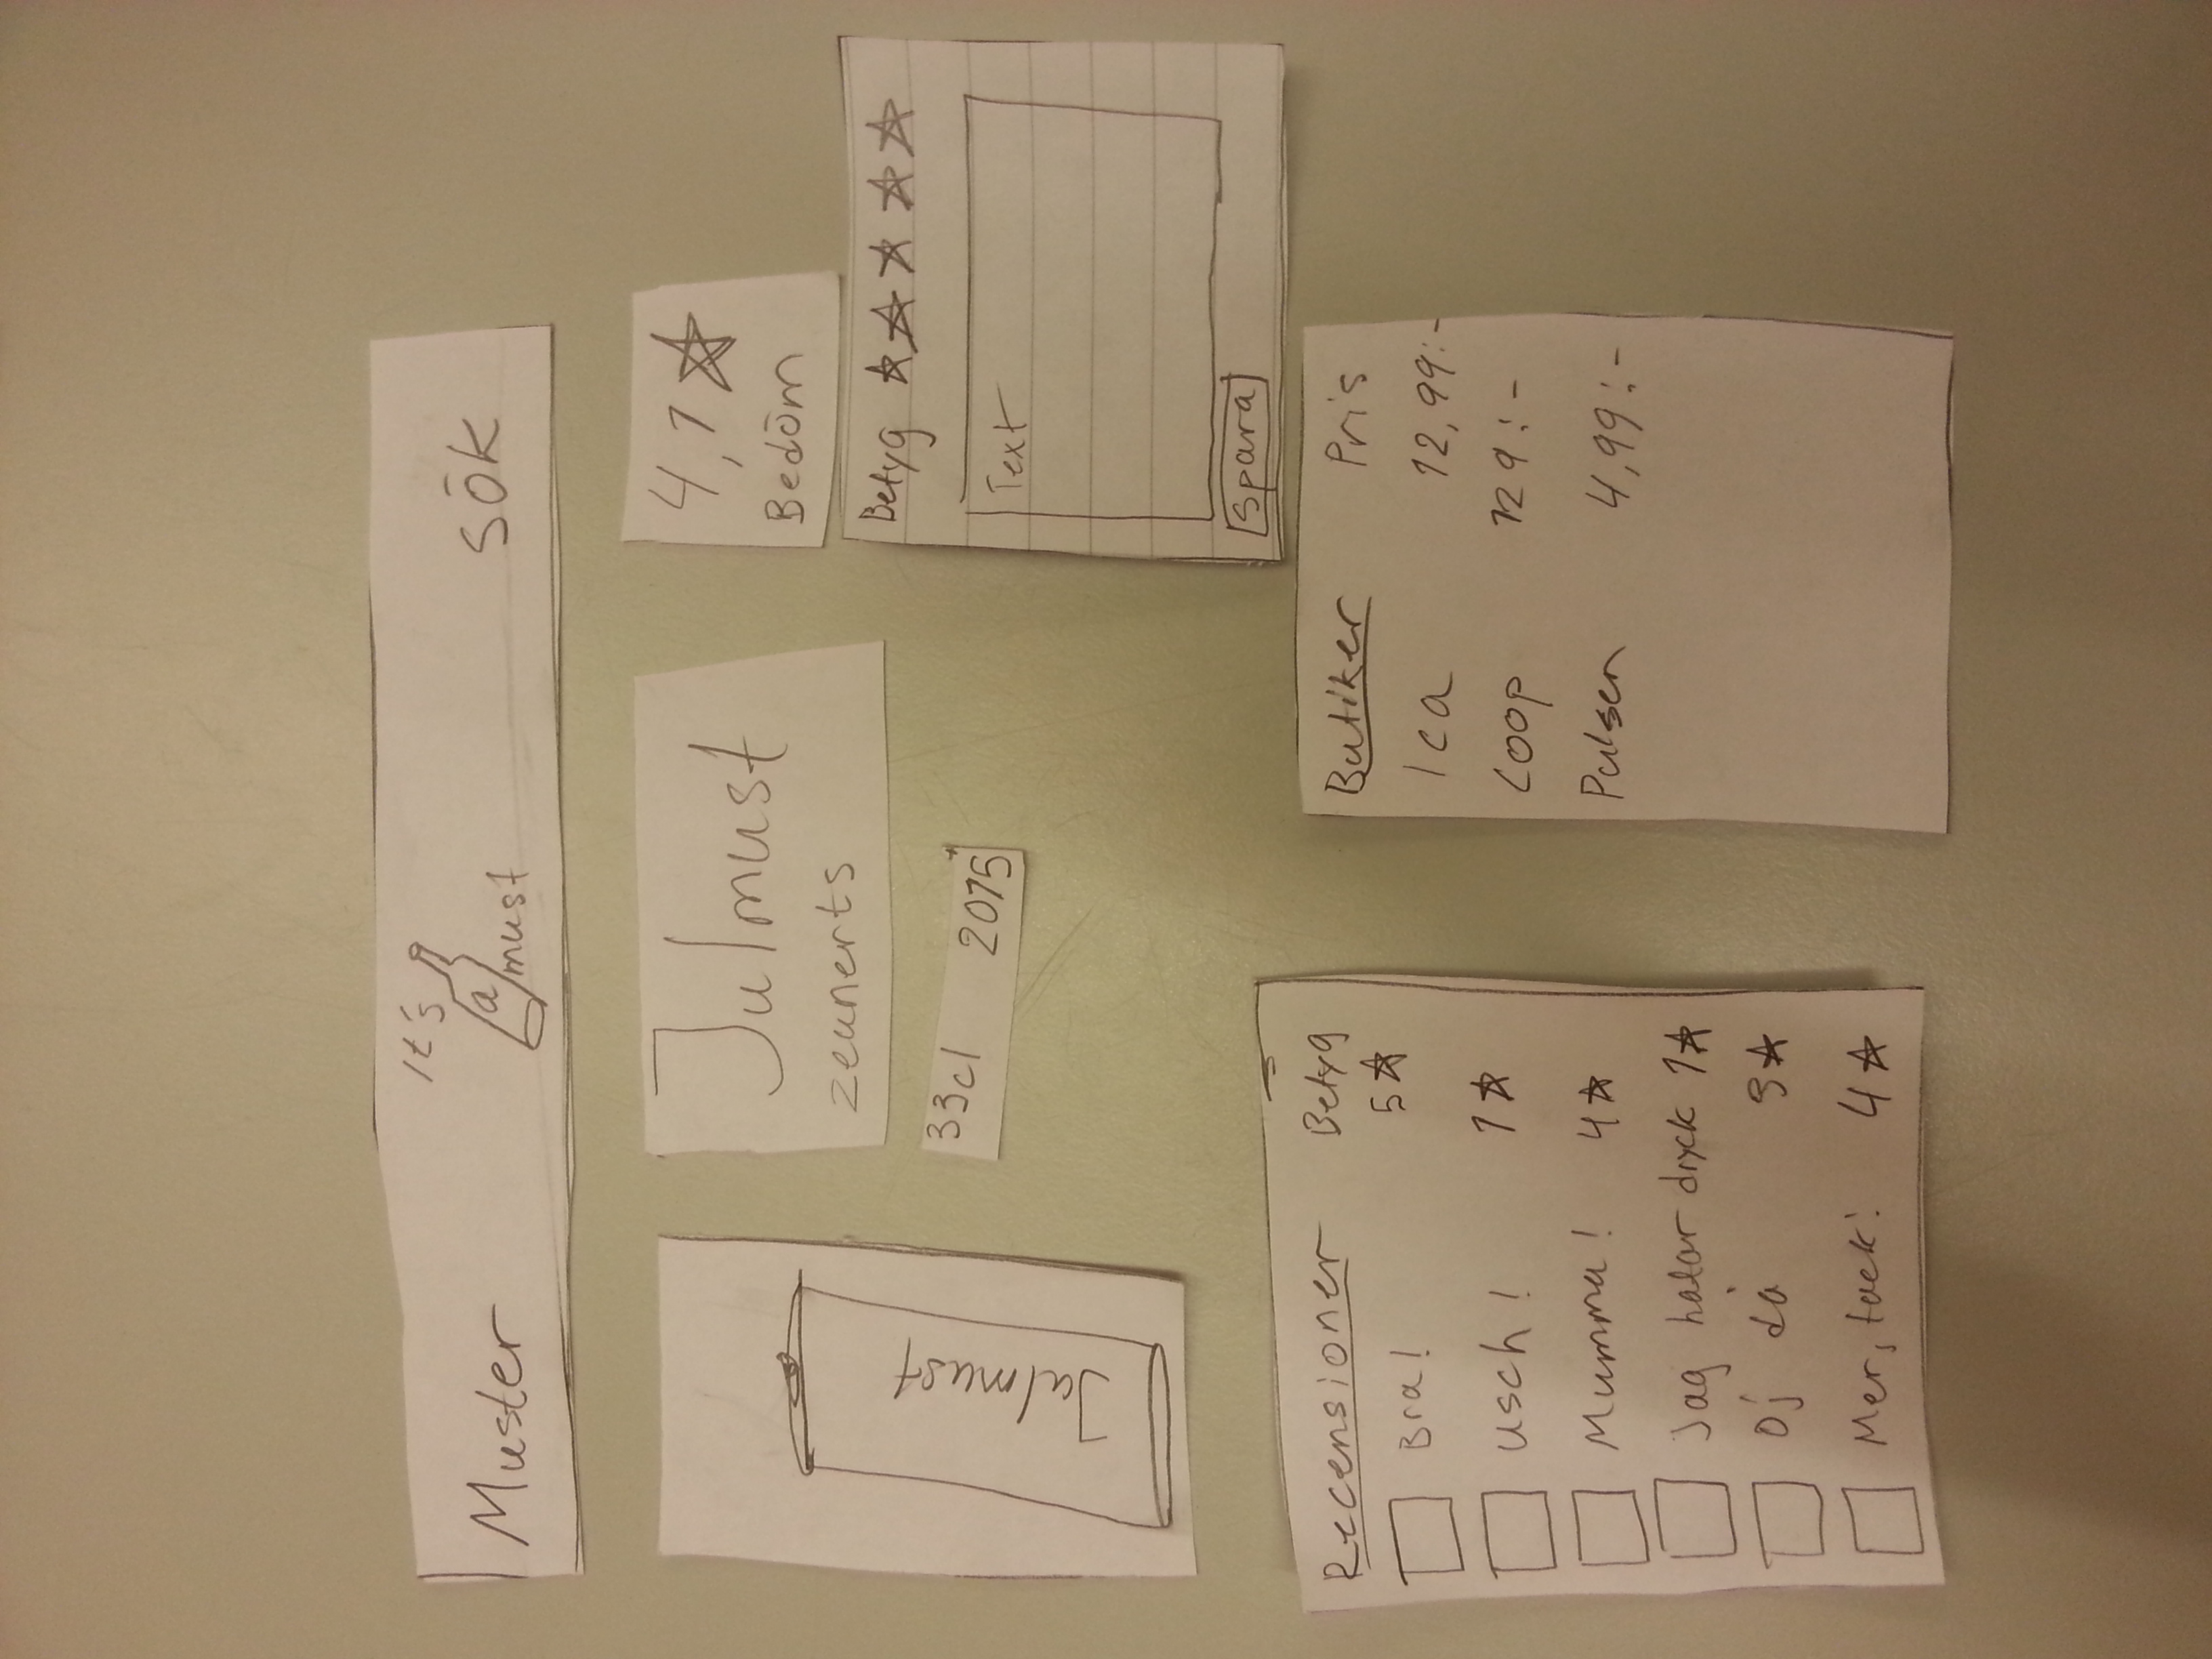 Muster
It's
a
must
SÖK
Julmust
Julmust
zeunerts
33cl 2015
4,1
Bedöm
Betyg
Text
Spara
Recensioner Betyg
Bra! 5
usch! 1
Mumma! 4
Jag hatar dryck 1
Oj då
Mer, tack! 4
Butiker Pris
Ica 12,99:-
Coop 129:-
Pulsen 4,99:-